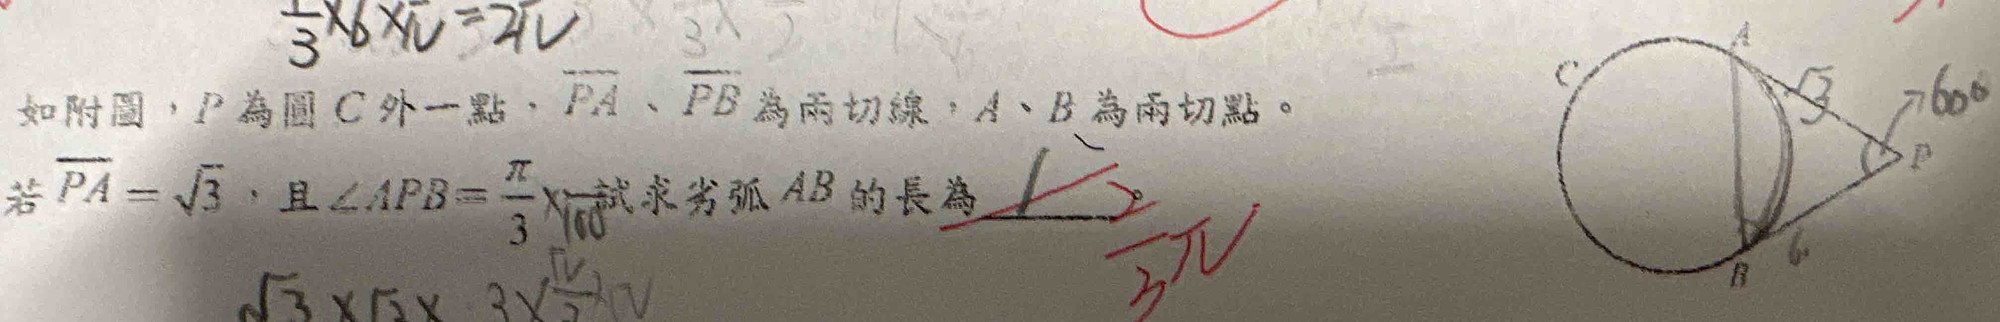 1/3×6×π=2π
如附圖，P 為圓 C 外一點，PA、PB 為兩切線，A、B 為兩切點。
若 PA = √3，且∠APB= π/3 × 試求劣弧 AB 的長為
2/3 π
√3×√3×
C
A
√3
60°
P
B